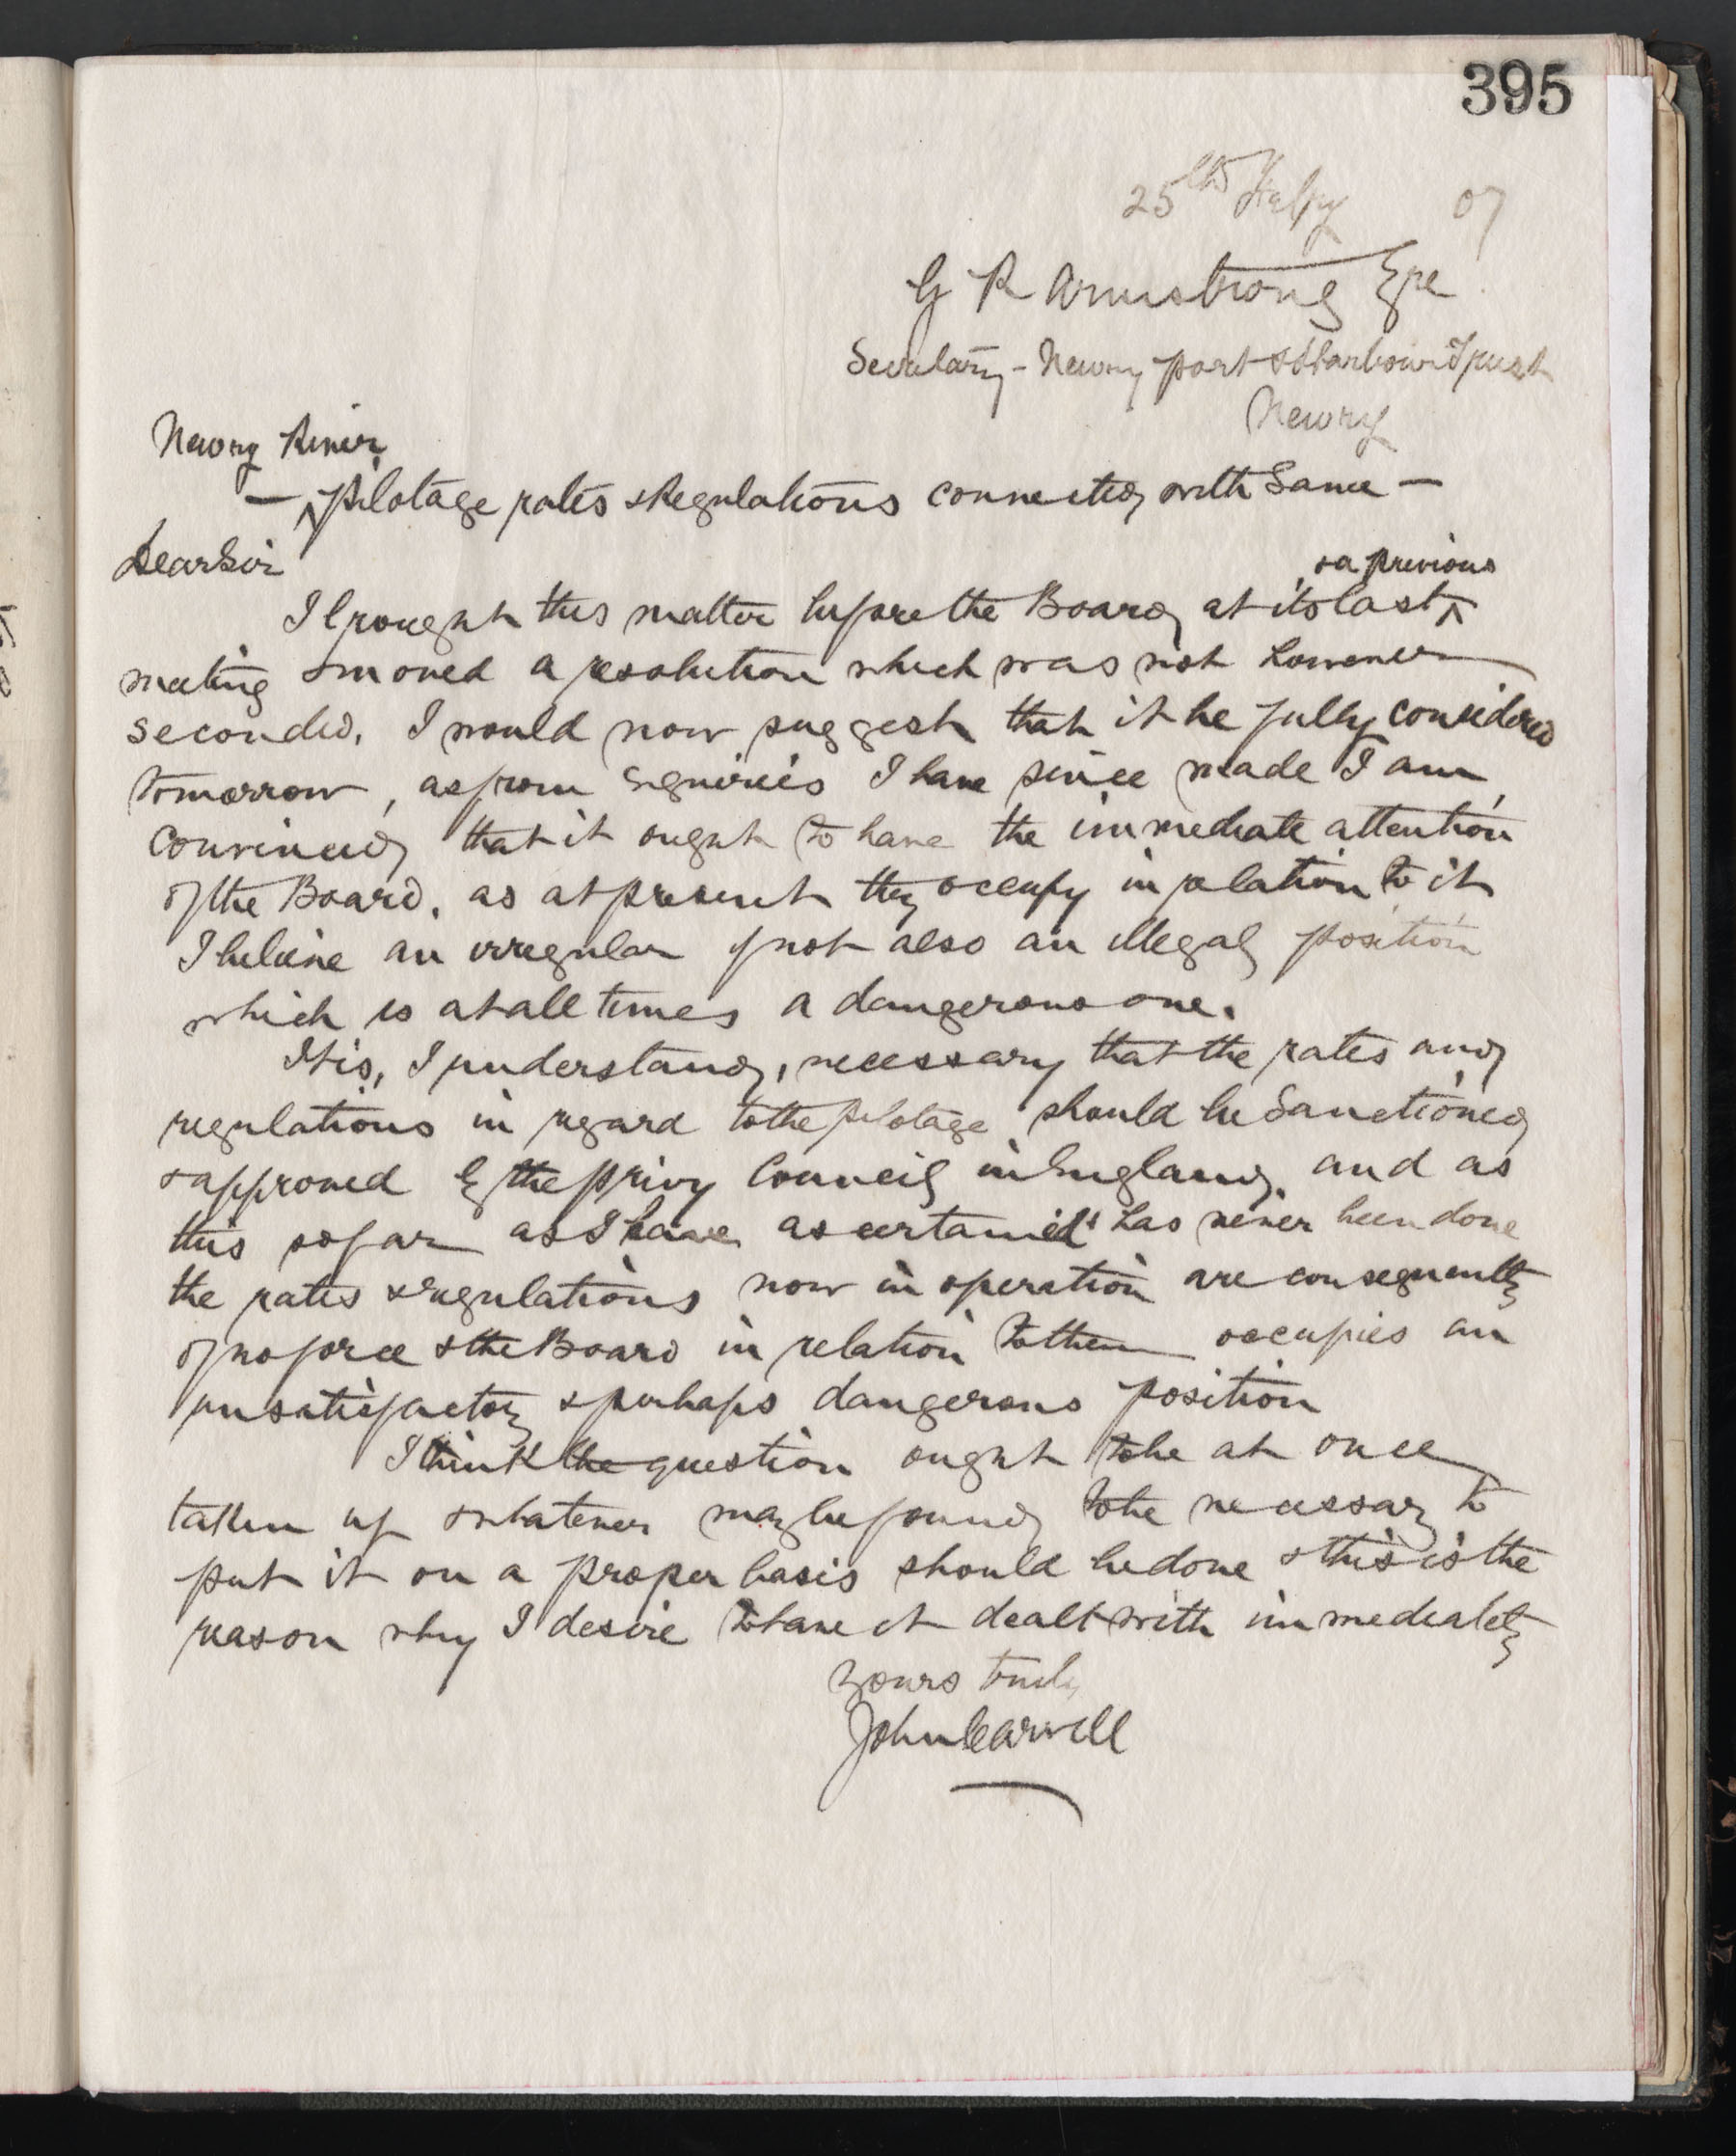 395
25th Feby 07
G R Armstrong Esqre
Secretary - Newry Port & Harbour Trust
Newry
Newry River
— Pilotage rates & Regulations connected with Same —
Dear Sir
& a previous
I brought this matter before the Board at its last
meeting & moved a resolution which was not however
seconded. I would now suggest that it be fully considered
tomorrow, as from enquiries I have since made I am
convinced that it ought to have the immediate attention
of the Board. as at present they occupy in relation to it
I believe an irregular if not also an illegal position
which is at all times a dangerous one.
It is, I understand, necessary that the rates and
regulations in regard to the pilotage should be Sanctioned
& approved by the Privy Council in England, and as
this so far as I have ascertained has never been done
the rates & regulations now in operation are consequently
of no force & the Board in relation to them occupies an
unsatisfactory & perhaps dangerous position
I think the question ought to be at once
taken up & whatever may be found to be necessary to
put it on a proper basis should be done & this is the
reason why I desire to have it dealt with immediately
Yours truly
John Carvill